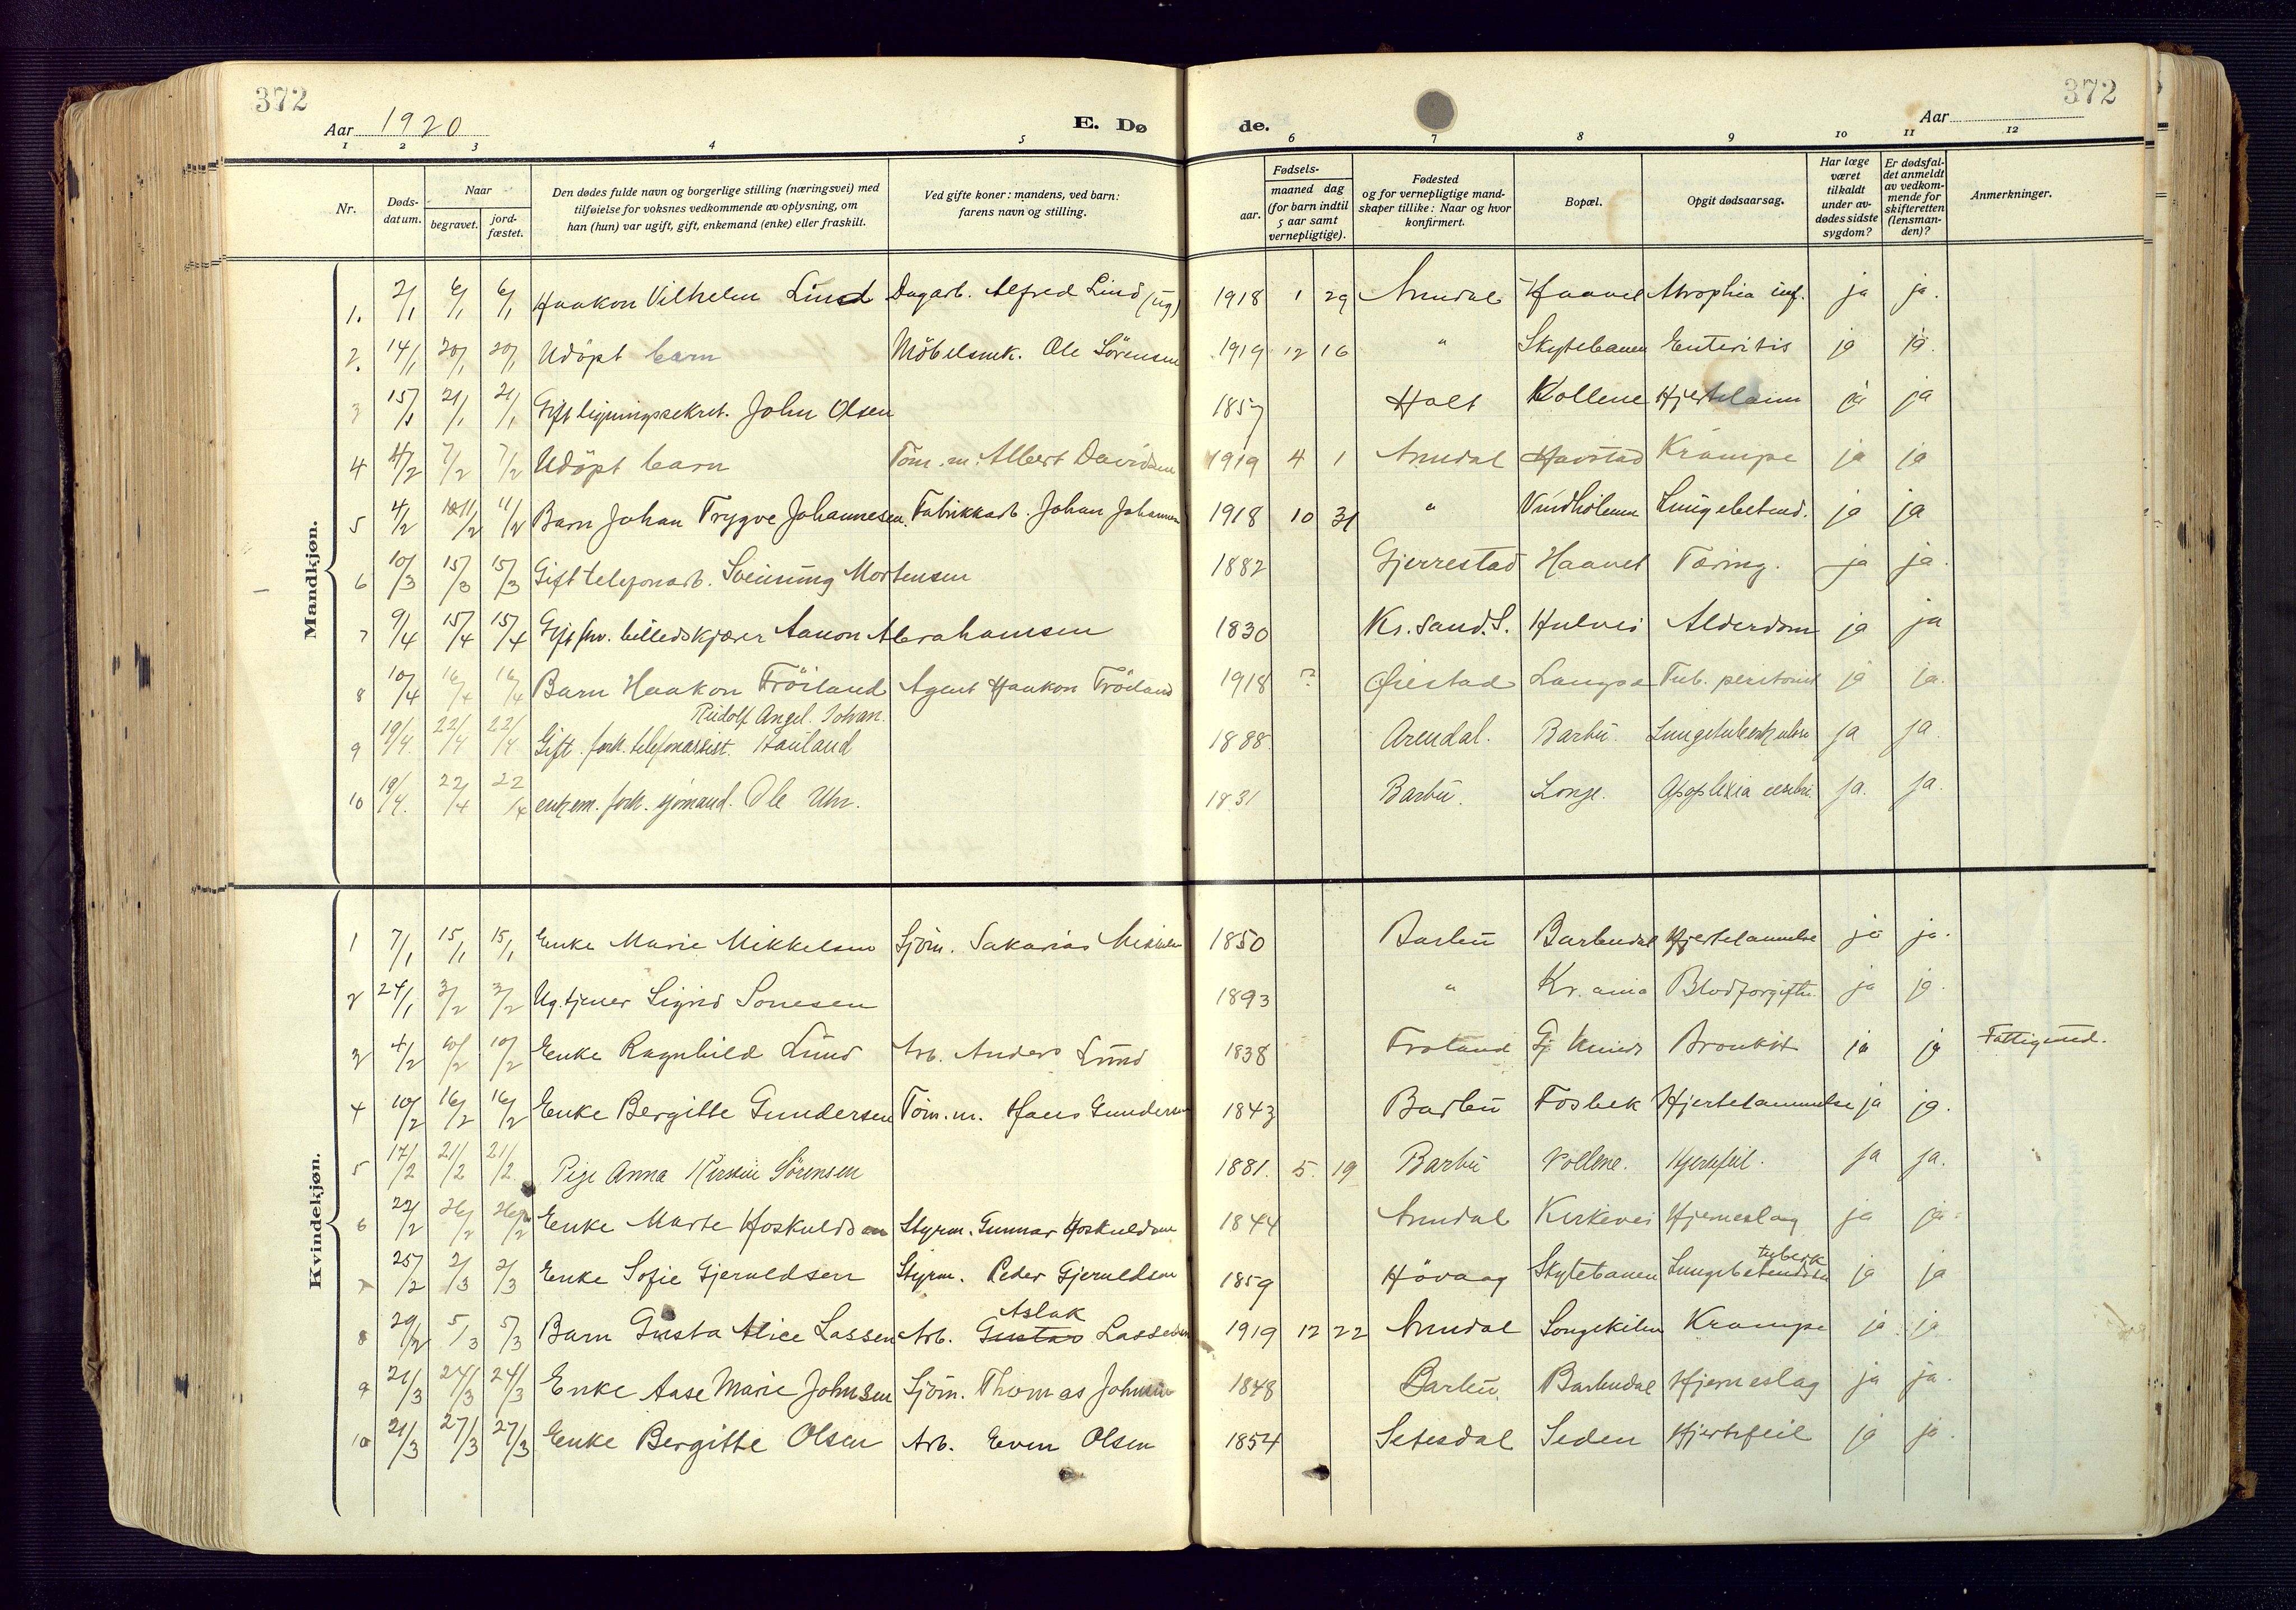 372
372
Aar 1920
E. Dø
de.
Aar
1 2 3 4 5 6 7 8 9 10 11 12
Nr.
Døds-
datum.
Naar
begravet.
jord-
fæstet.
Den dødes fulde navn og borgerlige stilling (næringsvei) med
tilføielse for voksnes vedkommende av oplysning, om
han (hun) var ugift, gift, enkemand (enke) eller fraskilt.
Ved gifte koner: mandens, ved barn:
farens navn og stilling.
Fødsels-
aar.
maaned dag
(for barn indtil
5 aar samt
vernepligtige).
Fødested
og for vernepligtige mand-
skaper tillike: Naar og hvor
konfirmert.
Bopæl.
Opgit dødsaarsag.
Har læge
været
tilkaldt
under av-
dødes sidste
sygdom?
Er dødsfal-
det anmeldt
av vedkom-
mende for
skifteretten
(lensman-
den)?
Anmerkninger.
Mandkjøn.
1. 2/1 6/1 6/1 Haakon Vilhelm Lind Dagarb. Alfred Lind (ug) 1918 1 29 Arendal Haavet Atrophia inf. ja ja.
2. 14/1 20/1 20/1 Udöpt barn Möbelsnk. Ole Sörensen 1919 12 16 " Skytebanen Enteritis ja ja.
3 15/1 21/1 21/1 Gift ligningssekret. John Olsen 1857 Holt Kollene ja ja
4 4/2 7/2 7/2 Udöpt barn Töm.m. Albert Davidsen 1919 4 1 Arendal Havstad Krampe ja ja
5 4/2 11/2 11/2 Barn Johan Trygve Johannesen. Fabrikkarb. Johan Johannesen 1918 10 31 " Vindholmen Lungebetend. ja ja
6 10/3 15/3 15/3 Gift telefonarb. Sveinung Mortensen 1882 Gjerrestad Haavet Tæring. ja ja.
7 9/4 15/4 15/4 Gift fhv. billedskjærer Aanon Abrahamsen 1830 Kr.sand.S. Hulvei Alderdom ja ja
8 10/4 16/4 16/4 Barn Haakon Fröiland Agent Haakon Fröiland 1918 ? Øiestad Tub. peritonit ja ja.
Rudolf Angel. Johan.
9 19/4. 22/4 22/4 Gift. forh. telefonassist. Hauland 1888. Arendal. Barbu. Lungetuberkulose ja ja.
10 19/4. 22/4 22/4 enkem. forh. sjömand. Ole Uhr. 1831 Barbu. Longe. Apoplexia cerebri. ja. ja.
Kvindekjøn.
1 7/1 15/1 15/1 Enke Marie Mikkelsen Sjöm. Sakarias Mikkelsen 1850 Barbu Barbudal Hjertelammelse ja ja.
2 24/1 3/2 3/2 Ug. tjener Sigrid Sonesen 1893 " Kr.ania Blodforgiftn. ja ja.
3 4/2 10/2 10/2 Enke Ragnhild Lund Arb. Anders Lund 1838 Froland Bronkit ja ja Fattigund.
4 10/2 16/2 16/2 Enke Bergitte Gundersen Töm.m. Hans Gundersen 1843 Barbu Fosbek Hjertelammelse ja ja.
5 17/2 21/2 21/2. Pige Anna Kirstine Sörensen 1881. 5. 19 Barbu Vollene. Hjertefeil. ja ja.
6 22/2 26/2 26/2 Enke Marte Hoskuldsen Styrm. Gunnar Hoskuldsen 1844 Arendal Kirkevei Hjerneslag ja ja.
tuberk.
7 25/2 2/3 2/3 Enke Sofie Gjeruldsen Styrm. Peder Gjeruldsen 1859 Hövaag Skytebanen Lungebetendelse ja ja
Aslak
8 29/2 5/3 5/3 Barn Gusta Alice Lassen Arb. Gustav Lassesen 1919 12 22 Arendal Songekilen Krampe ja ja
9 21/3 24/3 24/3 Enke Aase Marie Johnsen Sjöm. Thomas Johnsen 1848 Barbu. Barbudal Hjerneslag ja ja.
10 21/3 27/3 27/3 Enke Bergitte Olsen Arb. Even Olsen 1854 Setesdal Seden Hjertefeil ja ja.